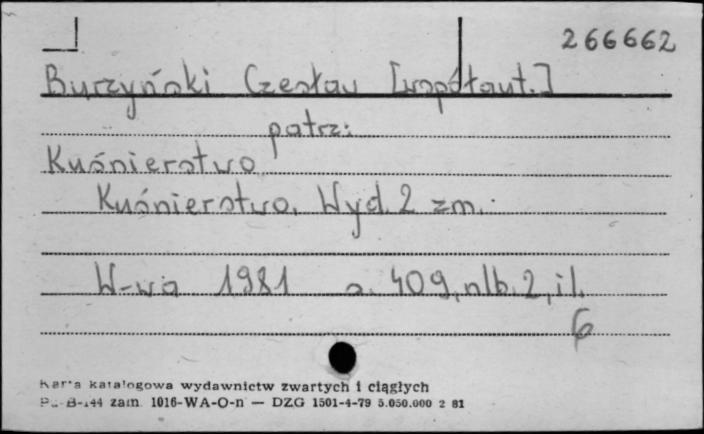 266662
Burzyński Czesław [współaut.]
patrz:
Kuśnierstwo
Kuśnierstwo. Wyd. 2 zm.
W-wa 1981 s. 409, nlb. 2, il.
6
Karta katalogowa wydawnictw zwartych i ciągłych
Pu-B-144 zam. 1016-WA-O-n — DZG 1501-4-79 5.050.000 2 81